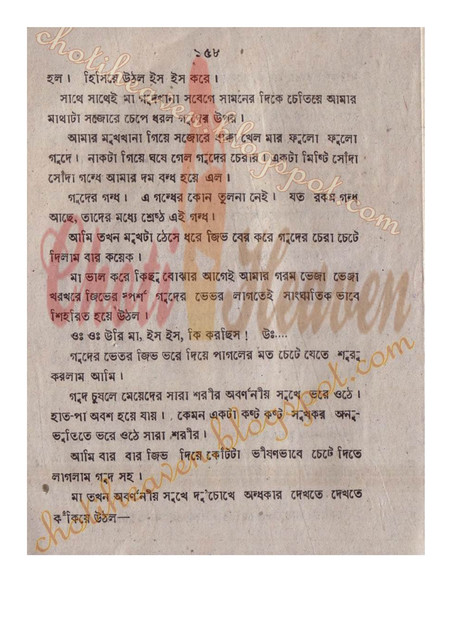 ১৫৮
হল। হিসিয়ে উঠল ইস ইস করে।
সাথে সাথেই মা গুদখানা সবেগে সামনের দিকে চেতিয়ে আমার
মাথাটা সজোরে চেপে ধরল গুদের উপর।
আমার মুখখানা গিয়ে সজোরে ধাক্কা খেল মার ফুলো ফুলো
গুদে। নাকটা গিয়ে ঘষে গেল গুদের চেরায়। একটা মিষ্টি সোঁদা
সোঁদা গন্ধে আমার দম বন্ধ হয়ে এল।
গুদের গন্ধ। এ গন্ধের কোন তুলনা নেই। যত রকম গন্ধ
আছে, তাদের মধ্যে শ্রেষ্ঠ এই গন্ধ।
আমি তখন মুখটা ঠেসে ধরে জিভ বের করে গুদের চেরা চেটে
দিলাম বার কয়েক।
মা ভাল করে কিছু বোঝার আগেই আমার গরম ভেজা ভেজা
খরখরে জিভের স্পর্শ গুদের ভেতর লাগতেই সাংঘাতিক ভাবে
শিহরিত হয়ে উঠল।
ওঃ ওঃ উরি মা, ইস ইস, কি করছিস! উঃ....
গুদের ভেতর জিভ ভরে দিয়ে পাগলের মত চেটে যেতে শুরু
করলাম আমি।
গুদ চুষলে মেয়েদের সারা শরীর অবর্ণনীয় সুখে ভরে ওঠে।
হাত-পা অবশ হয়ে যায়। কেমন একটা কষ্ট কষ্ট সুখকর অনু-
ভূতিতে ভরে ওঠে সারা শরীর।
আমি বার বার জিভ দিয়ে কোঁটটা ভীষণভাবে চেটে দিতে
লাগলাম গুদ সহ।
মা তখন অবর্ণনীয় সুখে দু'চোখে অন্ধকার দেখতে দেখতে
কঁকিয়ে উঠল—
chotiheaven.blogspot.com
Choti Heaven
chotiheaven.blogspot.com